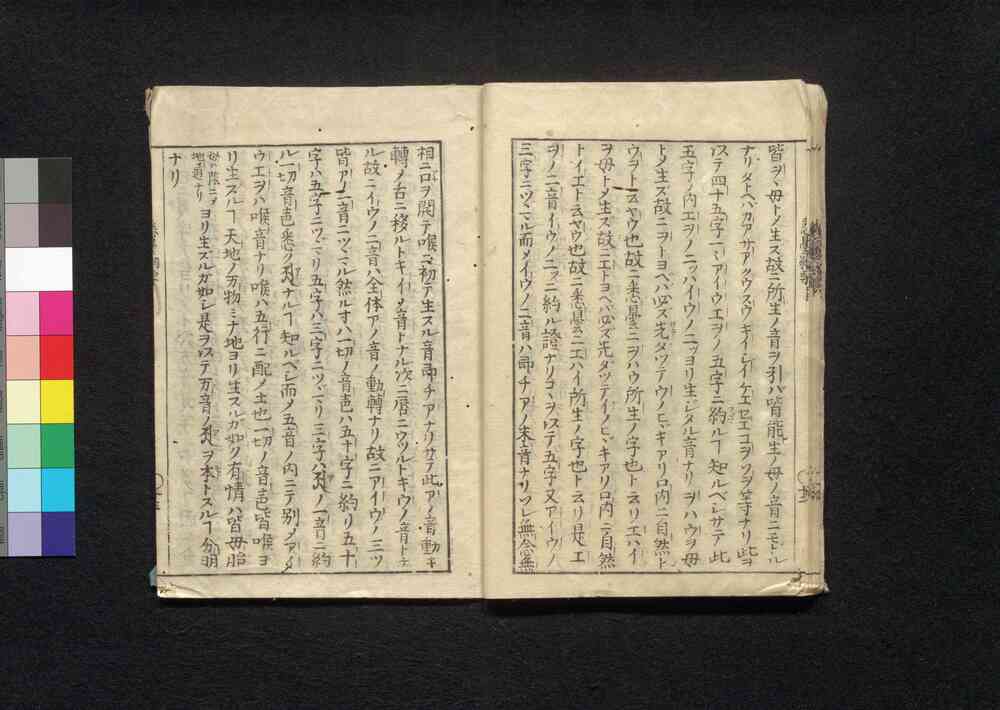 皆ヲヽ母トメ生ス故ニ所生ノ音ヲ引バ皆能生ノ母ノ音ニモドル
ナリタトヘバカアサアクウスウキイシイケエセエコヲソヲ等ナリ此ヲ
以テ四十五字ミナアイウエヲノ五字ニ約ルヿ知ルベシサテ此
五字ノ内エヲノ二ツハイウノ二ツヨリ生シタル音ナリヲハウヲ母
トメ生ズ故ニヲトヨベバ必ズ先ダツテウノヒヾキアリ口内ニ自然ト
ウヲト云ヤウ也故ニ悉曇ニヲハウ所生ノ字也ト云リエハイ
ヲ母トメ生ズ故ニエトヨベバ必ズ先ダツテイノヒヾキアリ口内ニ自然
トイエト云ヤウ也故ニ悉曇ニエハイ所生ノ字也ト云リ是エ
ヲノ二音イウノ二ツニ約ル證ナリコヽヲ以テ五字又アイウノ
三字ニツヾマル而メイウノ二音ハ即チアノ末音ナリソレ無念無
相ニ口ヲ開テ喉ニ初テ生スル音即チアナリサテ此アノ音動キ
轉メ舌ニ移ルトキイノ音トナル次ニ唇ニウツルトキウノ音トナ
ル故ニイウノ二音ハ全体アノ音ノ動轉ナリ故ニアイウノ三ツ
皆アノ一音ニツヾマル然ルオハ一切ノ音色ハ五十字ニ約リ五十
字ハ五字ニツヾマリ五字ハ三字ニツヾマリ三字ハアノ一音ニ約
ル一切音色悉ク アナルヿ知ルベシ而メ五音ノ内ニテ別メアイ
ウエヲハ喉音ナリ喉ハ五行ニ配メ土也一切ノ音色皆喉ヨ
リ生スルヿ天地ノ万物ミナ地ヨリ生スルガ如ク有情ハ皆母胎
ヨリ生スルガ如シ是ヲ以テ万音ノ ヲ本トスルヿ分明
ナリ